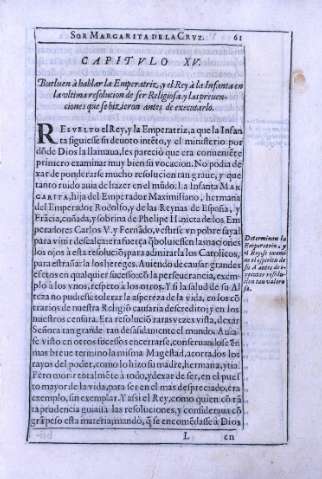 SOR MARGARITA DE LA CRVZ. 61
CAPITVLO XV.
Buelven à hablar la Emperatriz, y el Rey à la Infanta en
la vltima resolucion de ser Religiosa, y las preuen-
ciones que se hizieron antes de executarlo.
RESVELTO el Rey, y la Emperatriz, a que la Infan
ta siguiesse su deuoto intẽto, y el ministerio por
dõde Dios la llamaua, les pareciò que era conueniẽte
primero examinar muy bien su vocacion. No podia de
xar de ponderarse mucho resolucion tan graue, y que
tanto ruido auia de hazer en el mũdo. La Infanta MAR
GARITA, hija del Emperador Maximiliano, hermana
del Emperador Rodolfo, y de las Reynas de España, y
Frãcia, cuñada, y sobrina de Phelipe II. nieta de los Em
peradores Carlos V. y Fernãdo, vestirse vn pobre sayal
para viuir descalça: era fuerça q̃ boluiessen las naciones
los ojos a esta resoluciõ, para admirar la los Catolicos,
para estrañarla los hereges. Auiendo de causar grandes
efetos en qualquier sucesso: cõ la perseuerancia, exem-
plo a los vnos, respeto à los otros. Y si la salud de su Al
teza no pudiesse tolerar la aspereza de la vida, en los cõ
trarios de nuestra Religiõ causaria descredito; y en los
nuestros censura. Era resoluciõ raras vezes vista, dexar
Señora tan grande tan desasidamente el mundo. Auia
se visto en otros sucessos encerrarse, conseruandose en
mas breue termino la misma Magestad, acortados los
rayos del poder, como lo hizo su madre, hermana, y tia.
Pero morir totalmẽte à todo, y dexar de ser, en el pues
to mayor de la vida, para ser en el mas despreciado, era
exemplo, sin exemplar. Y assi el Rey, como quien cõ tã
ta prudencia guiaua las resoluciones, y consideraua cõ
grã peso esta materia, mandò, q̃ se encomẽdasse à Dios
Determinan la
Emperatriz, y
el Rey se exami
ne el espiritu de
su A. antes de e-
xecutar resolu-
cion tan valero
sa.
L en